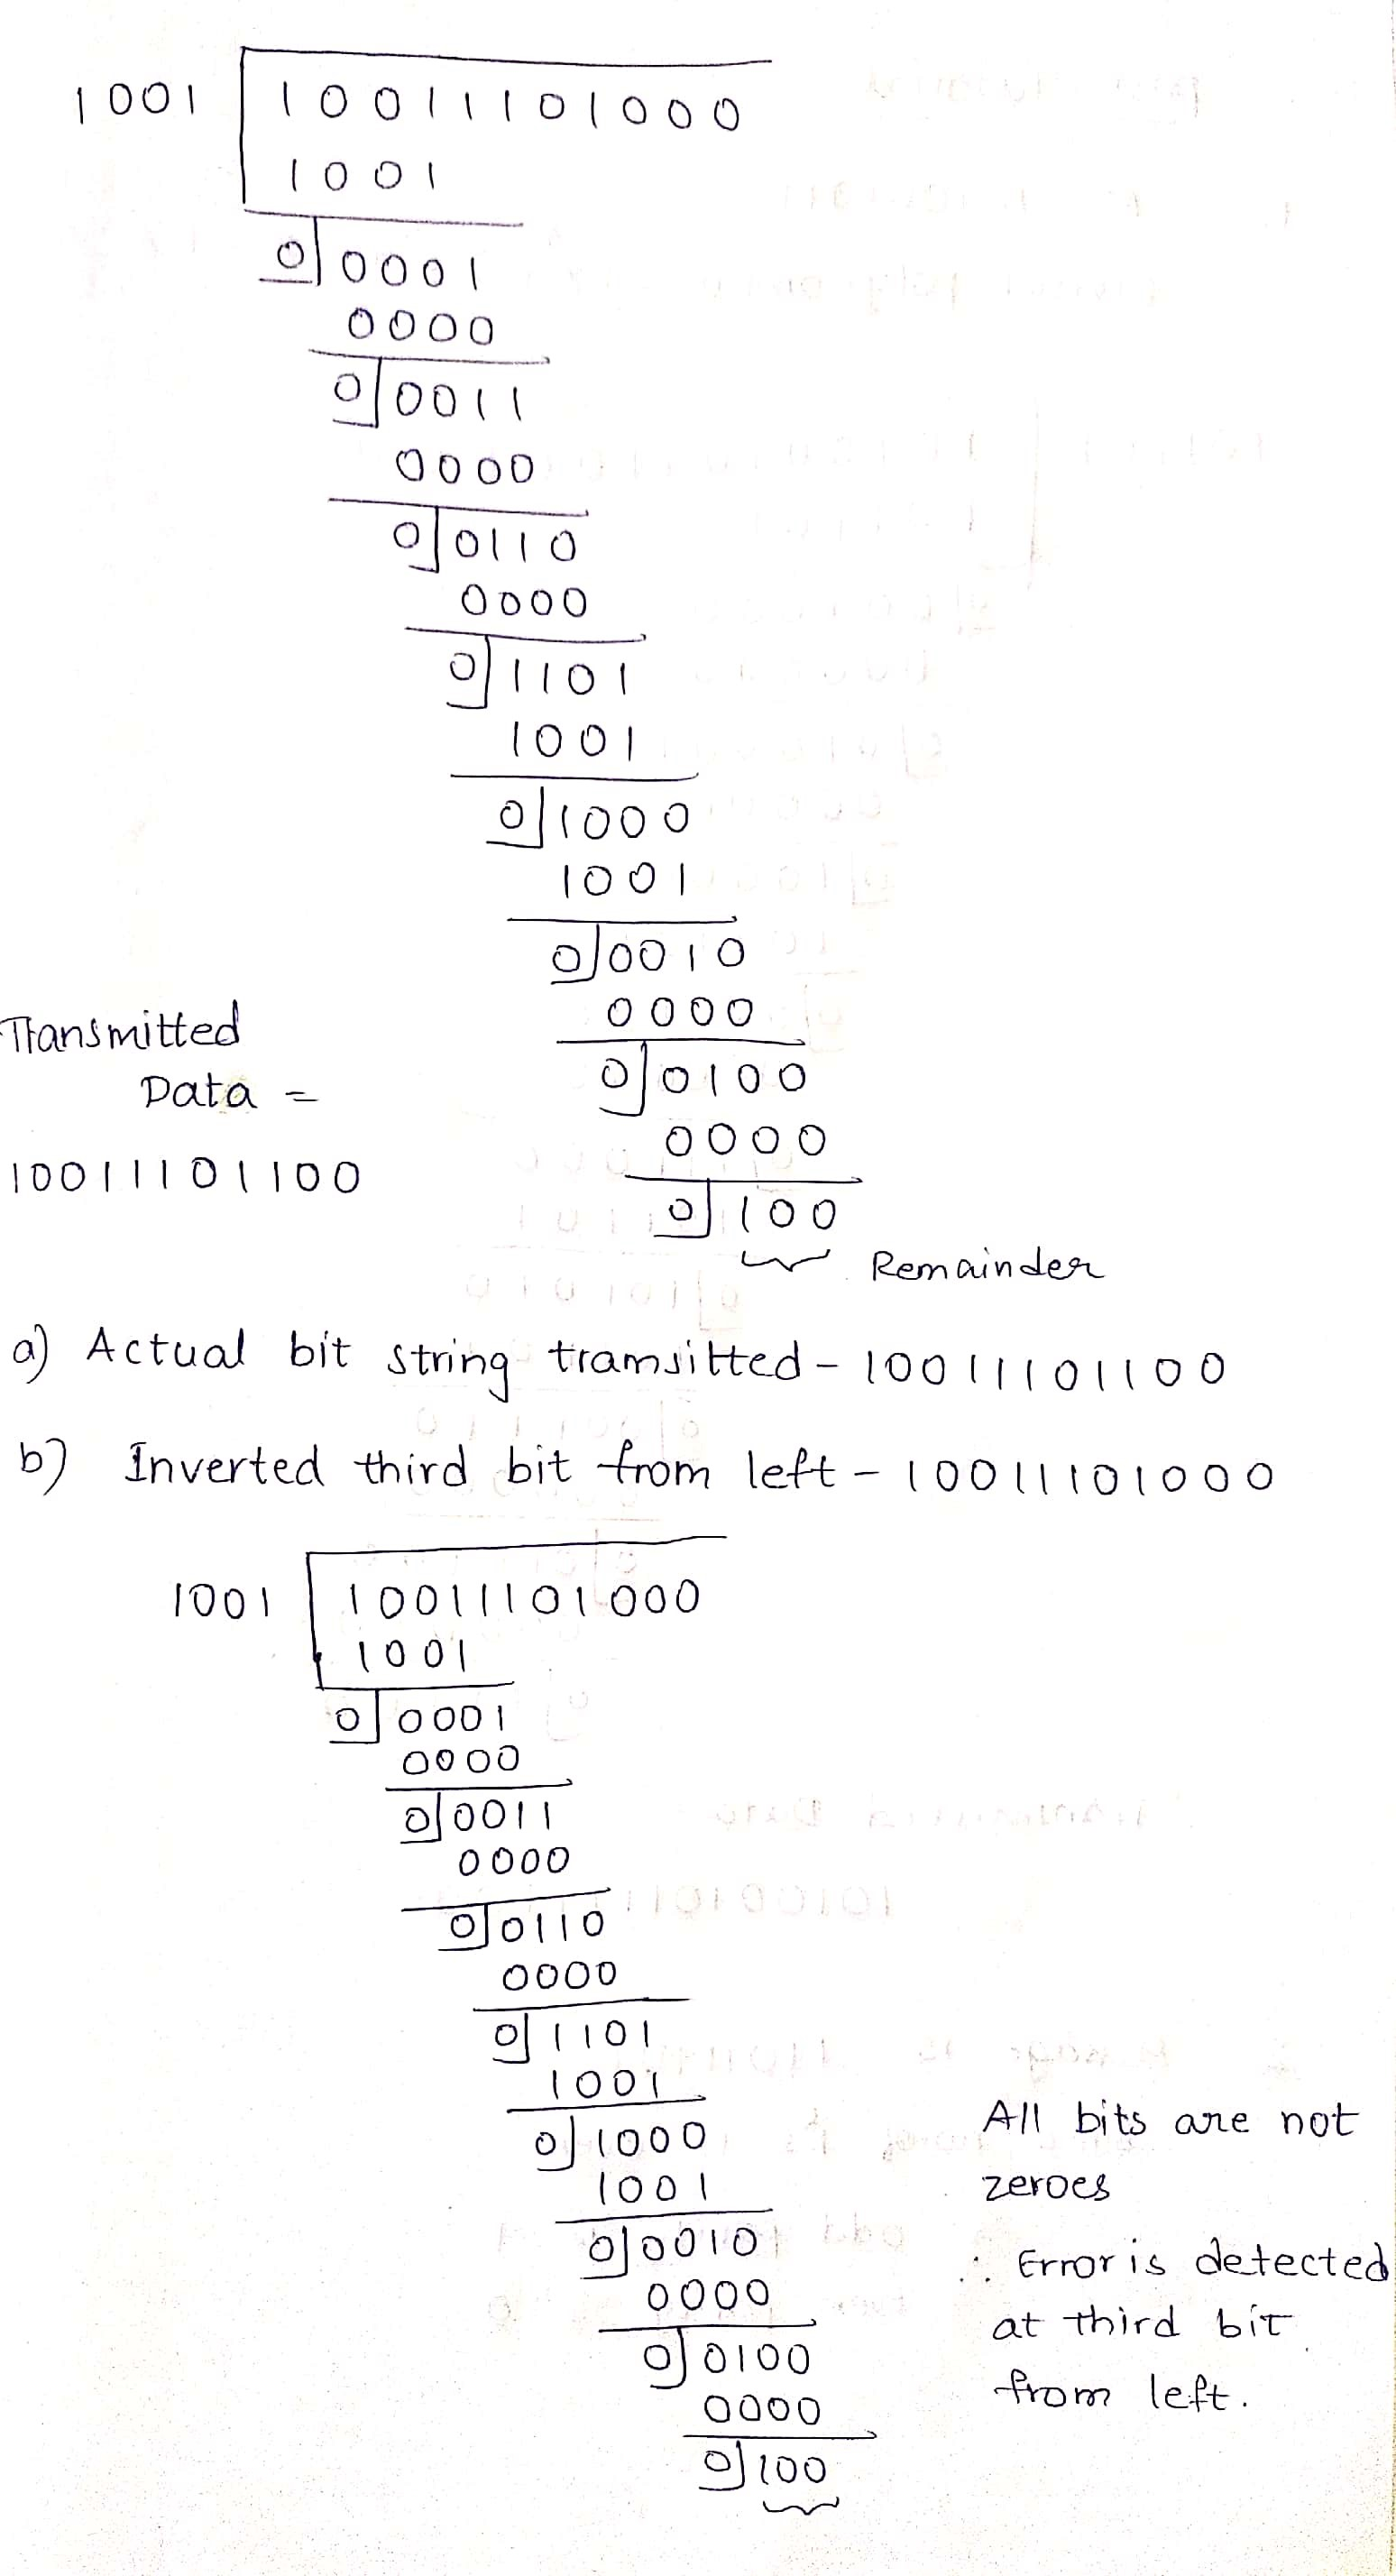 1001 10011101000
1001
0 0001
0000
0 0011
0000
0 0110
0000
0 1101
1001
0 1000
1001
0 0010
0000
0 0100
0000
0 100
Remainder
Transmitted
Data =
10011101100
a) Actual bit string tramsitted - 10011101100
b) Inverted third bit from left - 10011101000
1001 10011101000
1001
0 0001
0000
0 0011
0000
0 0110
0000
0 1101
1001
0 1000
1001
0 0010
0000
0 0100
0000
0 100
All bits are not
zeroes
∴ Error is detected
at third bit
from left.